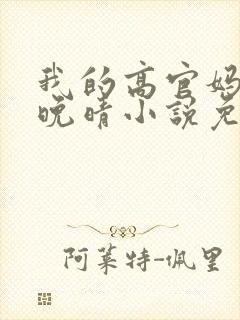 我的高官妈
晚晴小说免
阿莱特-佩里